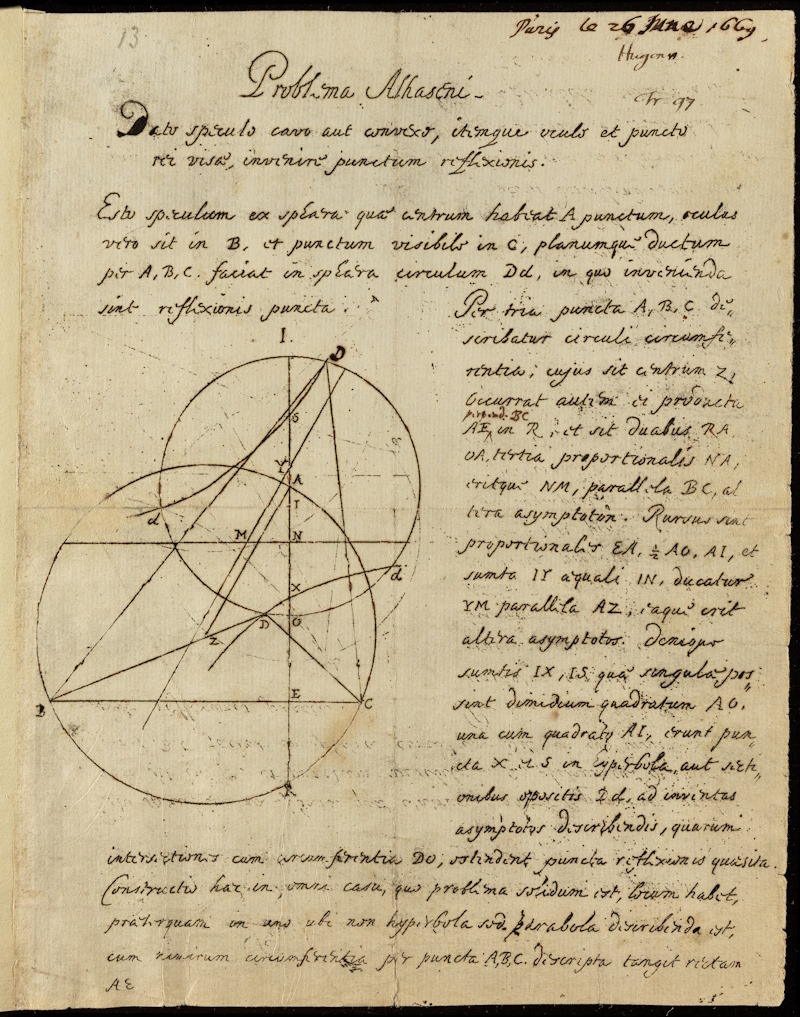 13
Paris le 26 June 1669.
Hugens.
Problema Alhaseni.
Dato speculo cavo aut convexo, itemque oculo et puncto
rei visæ, invenire punctum reflexionis.
Esto speculum ex sphæra quæ centrum habeat A punctum, oculus
vero sit in B, et punctum visibile in C, planumque ductum
per A, B, C. faciat in sphæra circulum Dd, in quo invenienda
sint reflexionis puncta.
Per tria puncta A, B, C de„
scribatur circuli circumfe„
rentia; cujus sit centrum Z,
Occurrat autem ei producta
perpend. BC
AE, in R, et sit duabus RA
OA, tertia proportionalis NA,
eritque NM, parallela BC, al
tera asymptotôn. Rursus sint
proportionales EA, ½ AO, AI, et
sumta IY æquali IN, ducatur
YM parallela AZ, eaque erit
altera asymptotos. Denique
sumtis IX, IS quæ singulæ pos„
sint dimidium quadratum AO,
una cum quadrato AI, erunt pun„
cta X et S in hyperbola, aut secti„
onibus oppositis Dd, ad inventas
asymptotos describendis, quarum
intersectiones cum circumferentia DO, ostendent puncta reflexionis quæsita.
Constructio hæc in omni casu, quo problema solidum est, locum habet,
præterquam in uno ubi non hyperbola sed parabola describenda est,
cum nimirum circumferentia per puncta A,B,C. descripta tangit rectam
AE
I.
D
S
Y
A
I
d
M
N
X
d
D
O
Z
B
E
C
R